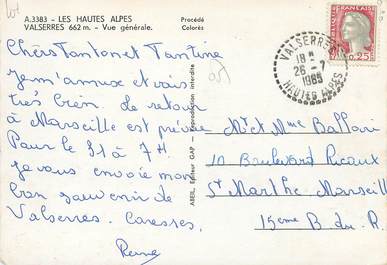 A.3383 - LES HAUTES ALPES
VALSERRES 662 m. - Vue générale.
Procédé
Colorés
Chers tanton et Tantine
je m'amuse et vais
très bien le retour
à Marseille est prévue
Pour le 31 à 7H.
je vous envoie mon
bon souvenir de
Valserres. Caresses.
Reine
ABEIL, Editeur GAP - Reproduction interdite
VALSERRES
18 H
26 - 7
1965
HAUTES ALPES
0,25
Mr et Mme Ballari
10 Boulevard Ricoux
St Marthe Marseill
15ème B. du R.